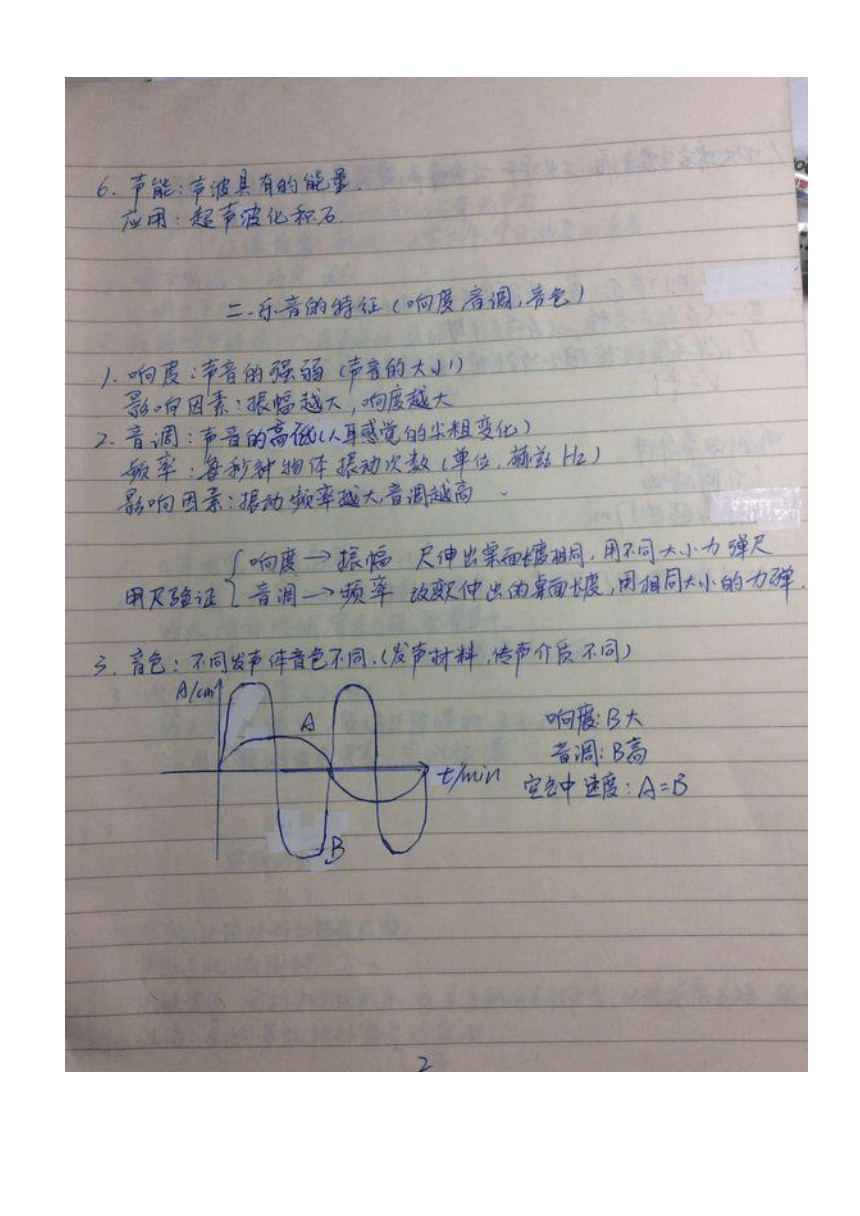 6. 声能:声波具有的能量.
应用:超声波化积石.
二.乐音的特征(响度,音调,音色)
1. 响度:声音的强弱(声音的大小)
影响因素:振幅越大,响度越大
2. 音调:声音的高低(人耳感觉的尖粗变化)
频率:每秒钟物体振动次数(单位.赫兹 Hz)
影响因素:振动频率越大,音调越高
响度→振幅 尺伸出桌面长度相同.用不同大小力弹尺
用尺验证
音调→频率 改变伸出的桌面长度,用相同大小的力弹.
3. 音色:不同发声体音色不同.(发声材料,传声介质不同)
A/cm
A
t/min
B
响度:B大
音调:B高
空气中速度:A=B
2